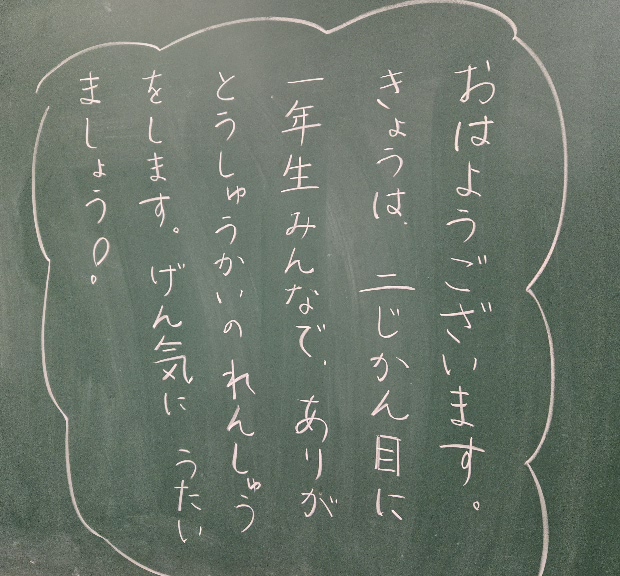 おはようございます。
きょうは、二じかん目に
一年生みんなで、ありが
とうしゅうかいのれんしゅう
をします。げん気に うたい
ましょう!